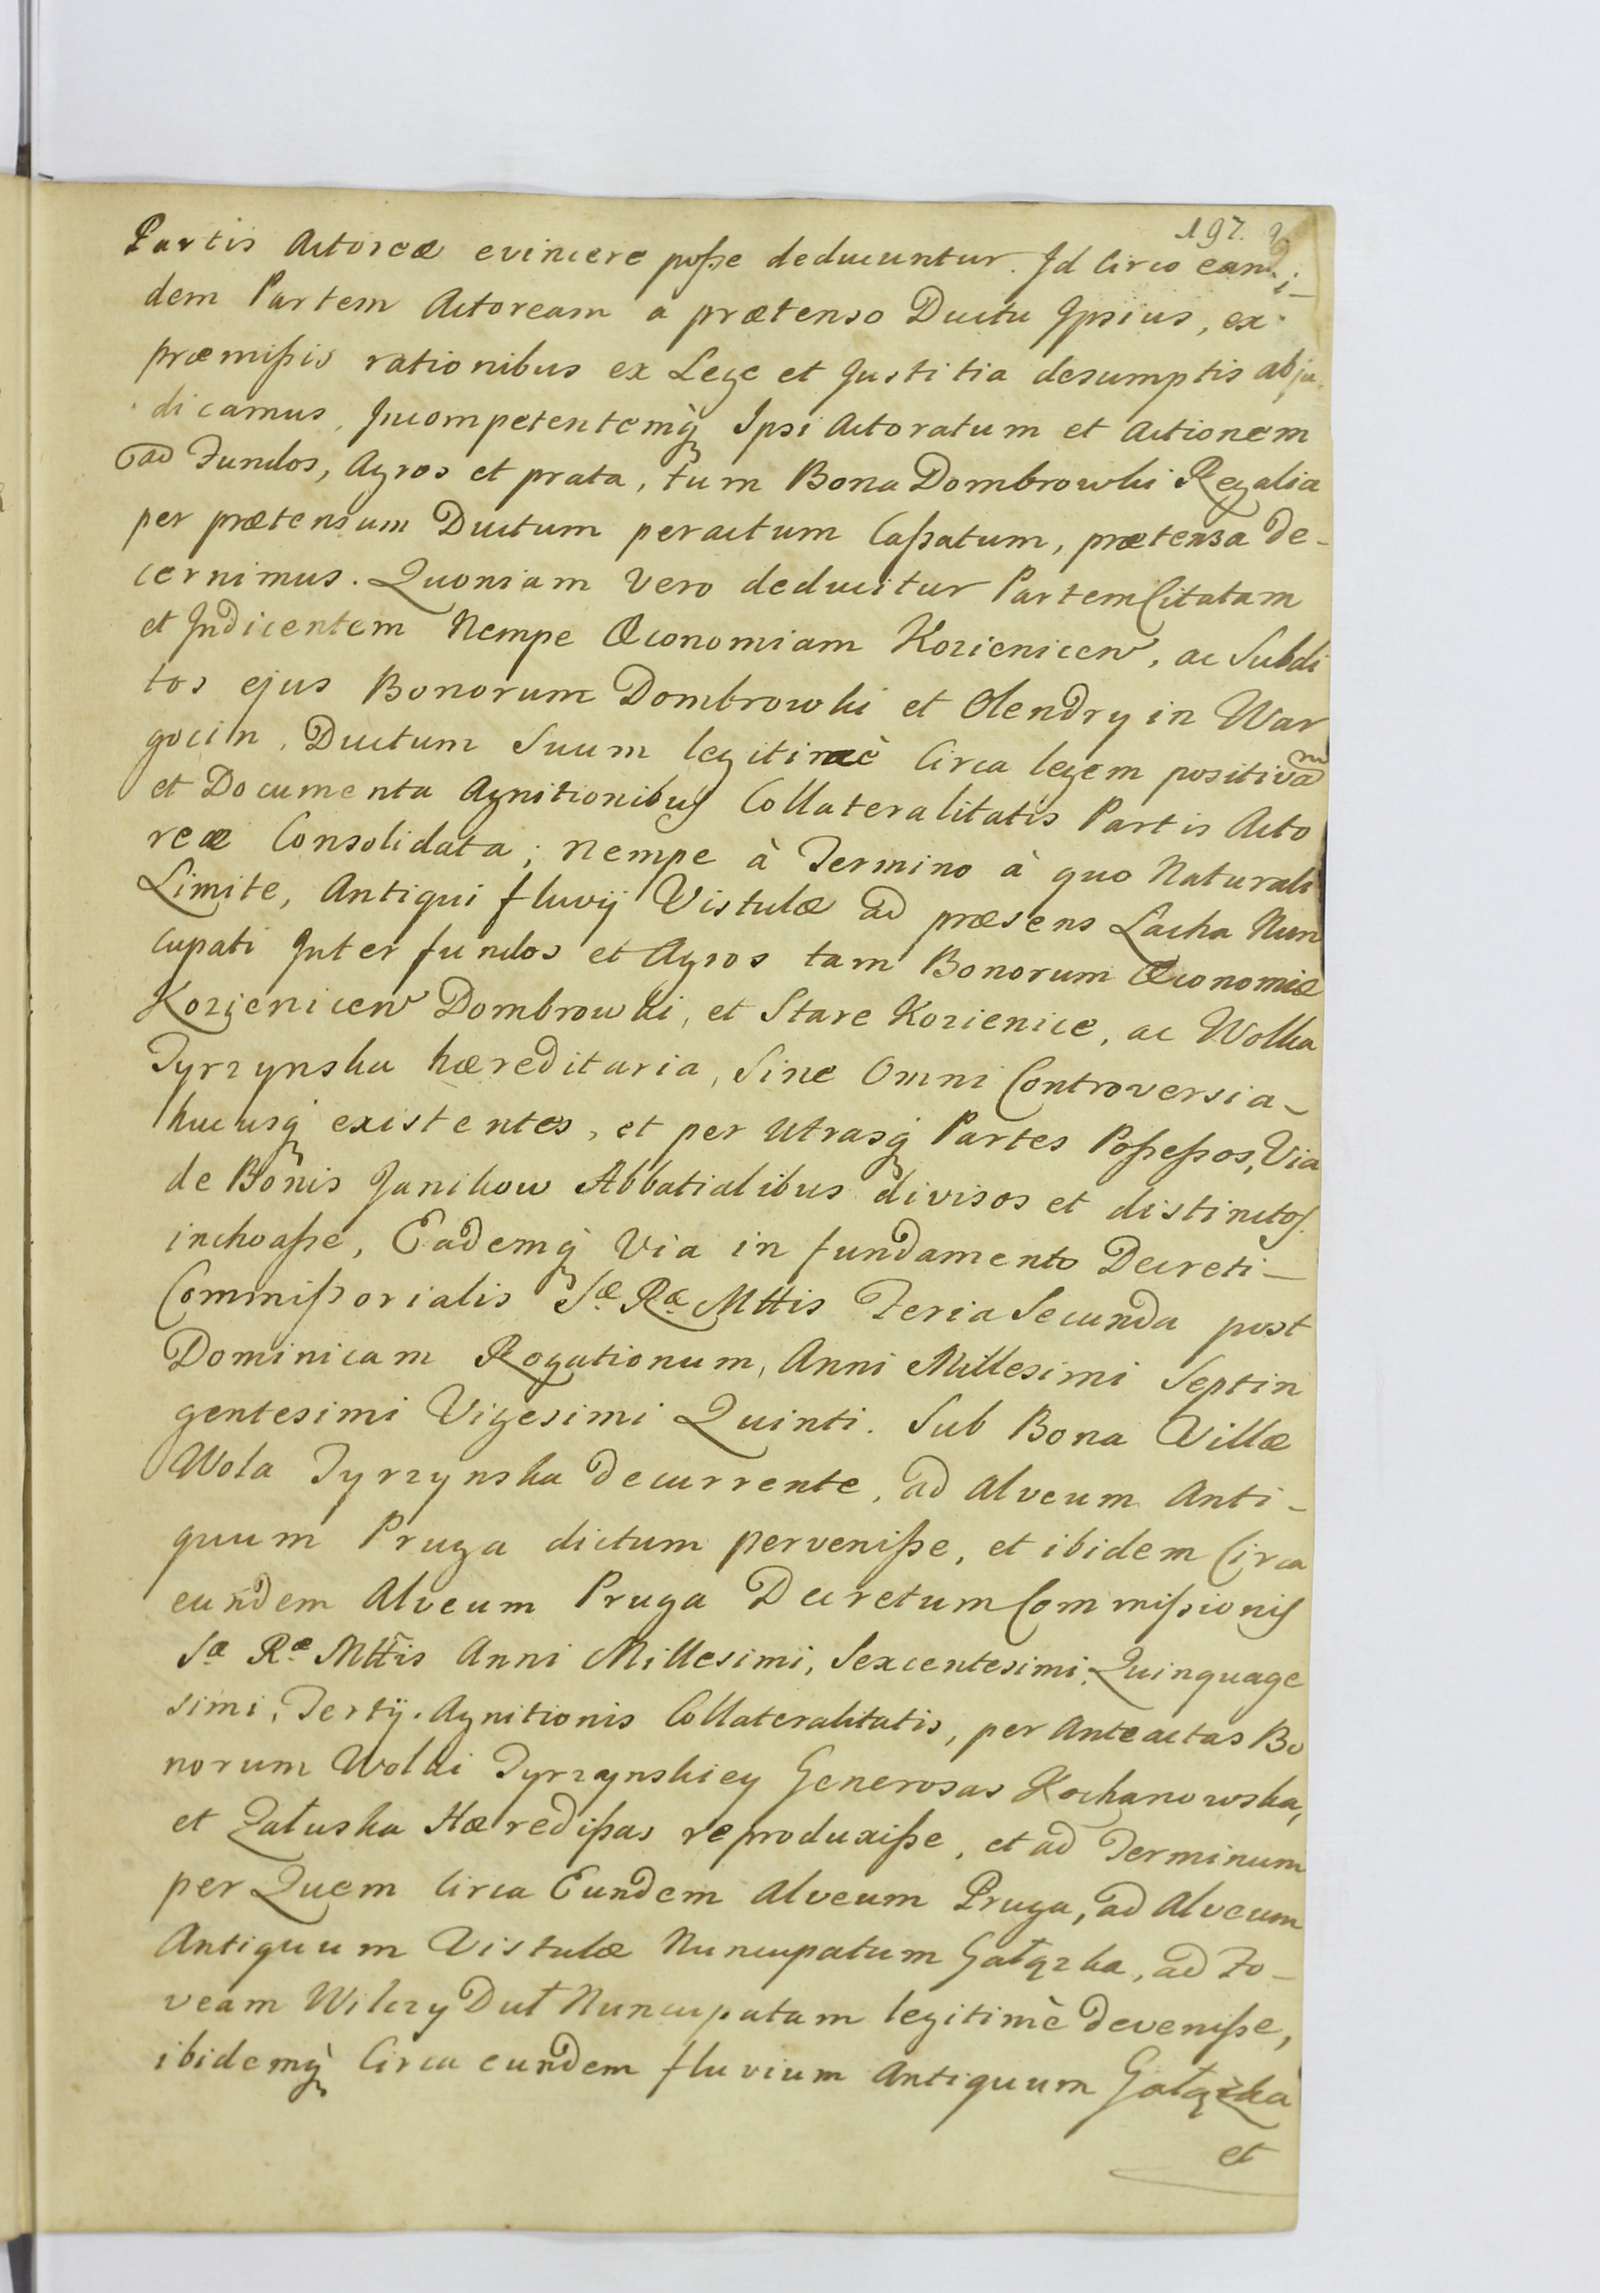 197.
Partis Actoreæ evincere poſse deducuntur. Id Circo ean-
dem Partem Actoream a prætenso Ductu Ipsius, ex
præmiſsis rationibus ex Lege et Justitia desumptis abju-
dicamus, Incompetentemq̀ Ipsi Actoratum et Actionem
ad Fundos, Agros et prata, tum Bona Dombrowki Regalia
per prætensum Ductum peractum Caſsatum, prætensa De-
cernimus. Quoniam Vero deducitur Partem Citatam
et Indicentem Nempe Œconomiam Kozienicen, ac Subdi
tos ejus Bonorum Dombrowki et Olendry in War
gocin, Ductum Suum legitimè Circa legem positivam
et Documenta Agnitionibus Collateralitatis Partis Acto
reæ Consolidata; Nempe à Termino à quo Naturali
Limite, Antiqui fluvij Vistulæ ad præsens Lacha Nun
cupati Inter fundos et Agros tam Bonorum Œconomiæ
Kozienicen Dombrowki, et Stare Kozienice, ac Wolka
Tyrzynska hæreditaria, Sine Omni Controversia-
hucusq̀ existentes, et per Utrasq̀ Partes Poſseſsos, Via
de Bonis Janikow Abbatialibus divisos et distinctos
inchoaſse, Eademq̀ Via in fundamento Decreti-
Commiſsorialis Sæ Ræ Mttis Feria Secunda post
Dominicam Rogationum, Anni Millesimi Septin
gentesimi Vigesimi Quinti. Sub Bona Villæ
Wola Tyrzynska decurrente, ad Alveum Anti-
quum Pruga dictum perveniſse, et ibidem Circa
eundem Alveum Pruga Decretum Commiſsionis
Sæ Ræ Mttis Anni Millesimi, Sexcentesimi, Quinquage
simi, Tertij. Agnitionis Collateralitatis, per Anteactas Bo
norum Wolki Tyrzynskiey Generosas Kochanowska,
et Załuska Hærediſsas reproduxiſse, et ad Terminum
per Quem Circa Eundem Alveum Pruga, ad Alveum
Antiquum Vistulæ Nuncupatum Gałązka, ad Fo-
veam Wilczy Duł Nuncupatam legitimè deveniſse,
ibidemq̀ Circa eundem fluvium Antiquum Gałązka
et